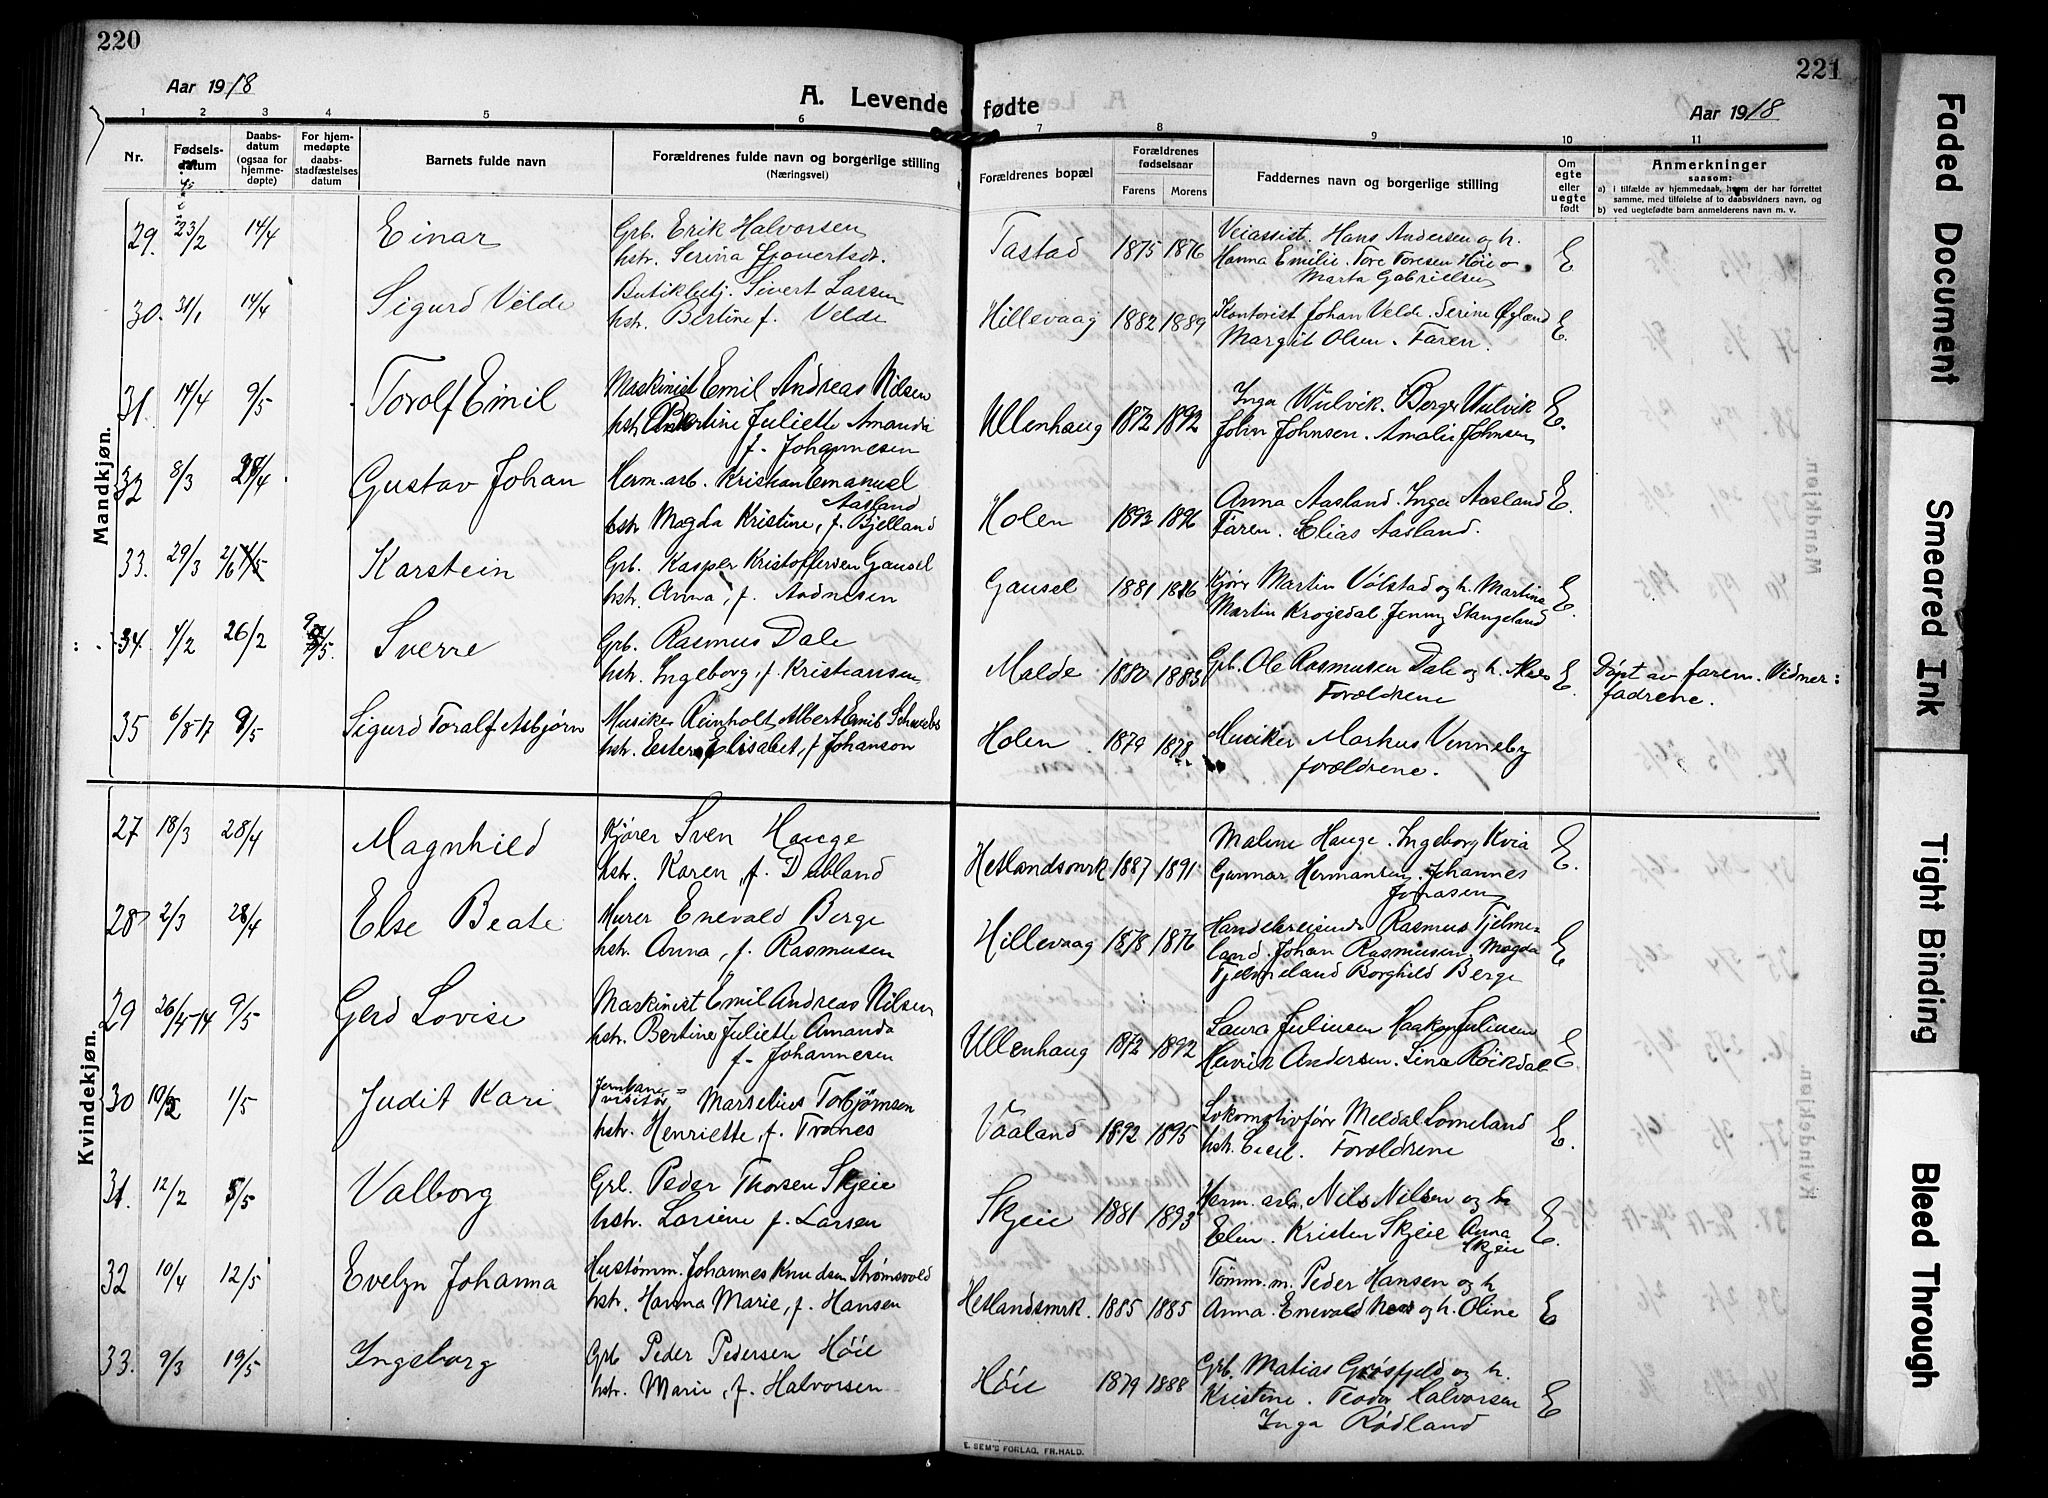 220
221
Aar 1918
A. Levende fødte
Aar 1918
1 2 3 4 5 6 7 8 9 10 11
Nr.
Fødsels-
datum
Daabs-
datum
(ogsaa for
hjemme-
døpte)
For hjem-
medøpte
daabs-
stadfæstelses
datum
Barnets fulde navn
Forældrenes fulde navn og borgerlige stilling
(Næringsvei)
Forældrenes bopæl
Forældrenes
fødselsaar
Farens Morens
Faddernes navn og borgerlige stilling
Om
egte
eller
uegte
født
Anmerkninger
sansom:
a) i tilfælde av hjemmedaab, hvem der har forrettet
samme, med tilføielse af to daabsvidners navn, og
b) ved uegtefødte barn anmelderens navn m. v.
Mandkjøn.
29. 23/2 14/4 Einar
Grb. Erik Halvorsen
hstr. Serina Govertsdr.
Tastad 1875 1876
Veiassist. Hans Andersen og h.
Hanna Emilie. Tore Toresen Höie
Marta Gabrielsen
E
30. 31/1 14/4 Sigurd Velde
Butikbetj. Sivert Lassen
hstr. Bertine f. Velde
Hillevaag 1882 1889
Kontorist Johan Velde. Serine Øglænd
Margit Olsen. Faren.
E.
31. 14/4 9/5 Torolf Emil
Maskinist Emil Andreas Nilsen
hstr. Bertine Juliette Amanda
f. Johannesen
Ullenhaug 1872 1892
Inga Wulvik. Berge Wulvik
John Johnsen. Amalie Johnsen
E.
32 8/3 28/4 Gustav Johan
Herm. arb. Kristian Emanuel
Aasland
hstr. Magda Kristine, f. Bjelland
Holen 1893 1896
Anna Aasland. Inga Aasland
Faren. Elias Aasland.
E.
33. 29/3 2/6 Karstein
Grb. Kasper Kristoffersen Gausel
hstr. Anna, f. Aadnesen
Gausel 1881 1886
Kjörer Martin Völstad og h. Martina
Martin Krogedal. Jenny Stangeland
E.
34. 1/2 26/2 9/5. Sverre
Grb. Rasmus Dale
hstr. Ingeborg, f. Kristiansen
Malde 1880 1883
Grb. Ole Rasmusen Dale og h.
Forældrene
E.
Döpt av faren. Vidner:
fadrene.
35 6/8-17 9/5 Sigurd Toralf Asbjørn
Musiker Reinholt Albert Emil
hstr. Ester Elisabet, f. Johanson
Holen 1879 1878
Musiker Markus Venneby
forældrene.
Kvindekjøn.
27 18/3 28/4 Magnhild
Kjører Sven Hauge
hstr. Karen, f. Dubland
Hetlandsmrk 1887 1891
Malene Hauge. Ingeborg Kvia
Gunnar Hermansen. Johannes
Jonasen
E.
28 2/3 28/4 Else Beate
Murer Enevald Berge
hstr. Anna, f. Rasmusen
Hillevaag 1878 1876
Handelsreisende Rasmus Tjelme-
land. Johan Rasmusen. Magda
Tjelmeland Borghild Berge
E
29 26/4-14 9/5 Gerd Lovise
Maskinist Emil Andreas Nilsen
hstr. Bertine Juliette Amanda
f. Johannesen
Ullenhaug 1872 1892
Laura Juliusen Haakon Juliusen
Henrik Andersen. Lina Röikdal
E.
30 10/2 1/5 Judit Kari
Jernbane-
visitör Marselius Torbjørnsen
hstr. Henriette, f. Tranes
Vaaland 1892 1895
Lokomotivförer Meldal Lomeland
hstr. Cecil. Forældrene
E.
31. 12/2 5/5 Valborg
Grb. Peder Thorsen Skjeie
hstr. Lorsine f. Larsen
Skjeie 1881 1893
Herm. arb. Nils Nilsen og h
Elin. Kristen Skjeie Anna
Skjeie
E.
32 10/4 12/5 Evelyn Johanna
Hustømm. Johannes Knudsen Strømsvold
hstr. Hanna Marie, f. Hansen
Hetlandsmrk. 1885 1885
Tömm.m. Peder Hansen og h
Anna. Enevald Næs og h. Oline
E
33. 9/3 19/5 Ingeborg
Grb Peder Pedersen Höie
hstr. Marie, f. Halvorsen
Höie 1879 1888
Grb. Matias Grösfjeld og h.
Kristine. Teodor Halvorsen
Inga Rödland
E
E. SEM'S FORLAG, FR.HALD.
Faded Document
Smeared Ink
Tight Binding
Bleed Through